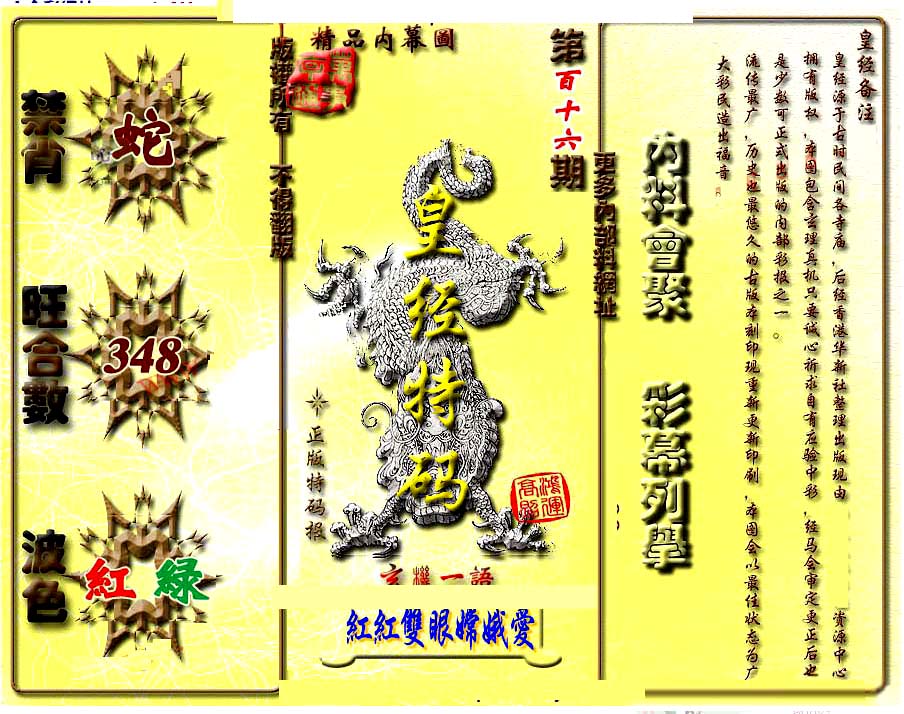 精品内幕圖
第百十六期
版權所有 不得翻版
更多内部料網址
禁肖
蛇
旺合數
348
波色
紅 綠
皇经特码
正版特码报
鴻運高照
玄機一語
紅紅雙眼嫦娥愛
内料會聚
彩幕列舉
皇经备注
皇经源于古时民间各寺庙，后经香港华新社整理出版现由
资源中心
拥有版权，本图包含玄理真机只要诚心祈求自有应验中彩，经马会审定更正后也
是少数可正式出版的内部彩报之一。
流传最广，历史也最悠久的古版本刻印现重新更新印刷，本图会以最佳状态为广
大彩民造出福音